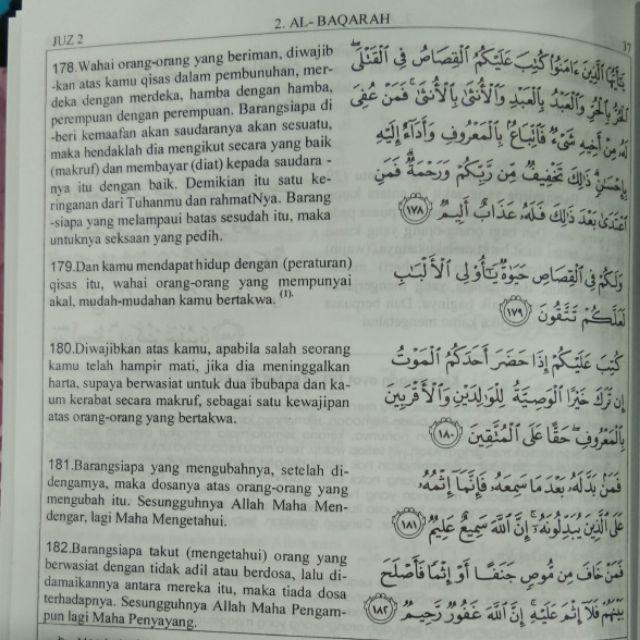 JUZ 2
2. AL-BAQARAH
37
178.Wahai orang-orang yang beriman, diwajib
-kan atas kamu qisas dalam pembunuhan, mer-
deka dengan merdeka, hamba dengan hamba,
perempuan dengan perempuan. Barangsiapa di
-beri kemaafan akan saudaranya akan sesuatu,
maka hendaklah dia mengikut secara yang baik
(makruf) dan membayar (diat) kepada saudara -
nya itu dengan baik. Demikian itu satu ke-
ringanan dari Tuhanmu dan rahmatNya. Barang
-siapa yang melampaui batas sesudah itu, maka
untuknya seksaan yang pedih.
يَٰٓأَيُّهَا ٱلَّذِينَ ءَامَنُوا۟ كُتِبَ عَلَيْكُمُ ٱلْقِصَاصُ فِى ٱلْقَتْلَى
ٱلْحُرُّ بِٱلْحُرِّ وَٱلْعَبْدُ بِٱلْعَبْدِ وَٱلْأُنثَىٰ بِٱلْأُنثَىٰ فَمَنْ عُفِىَ
لَهُۥ مِنْ أَخِيهِ شَىْءٌ فَٱتِّبَاعٌۢ بِٱلْمَعْرُوفِ وَأَدَآءٌ إِلَيْهِ
بِإِحْسَٰنٍ ذَٰلِكَ تَخْفِيفٌ مِّن رَّبِّكُمْ وَرَحْمَةٌ فَمَنِ
ٱعْتَدَىٰ بَعْدَ ذَٰلِكَ فَلَهُۥ عَذَابٌ أَلِيمٌ ١٧٨
179.Dan kamu mendapat hidup dengan (peraturan)
qisas itu, wahai orang-orang yang mempunyai
akal, mudah-mudahan kamu bertakwa. (1).
وَلَكُمْ فِى ٱلْقِصَاصِ حَيَوٰةٌ يَٰٓأُو۟لِى ٱلْأَلْبَٰبِ
لَعَلَّكُمْ تَتَّقُونَ ١٧٩
180.Diwajibkan atas kamu, apabila salah seorang
kamu telah hampir mati, jika dia meninggalkan
harta, supaya berwasiat untuk dua ibubapa dan ka-
um kerabat secara makruf, sebagai satu kewajipan
atas orang-orang yang bertakwa.
كُتِبَ عَلَيْكُمْ إِذَا حَضَرَ أَحَدَكُمُ ٱلْمَوْتُ
إِن تَرَكَ خَيْرًا ٱلْوَصِيَّةُ لِلْوَٰلِدَيْنِ وَٱلْأَقْرَبِينَ
بِٱلْمَعْرُوفِ حَقًّا عَلَى ٱلْمُتَّقِينَ ١٨٠
181.Barangsiapa yang mengubahnya, setelah di-
dengarnya, maka dosanya atas orang-orang yang
mengubah itu. Sesungguhnya Allah Maha Men-
dengar, lagi Maha Mengetahui.
فَمَنۢ بَدَّلَهُۥ بَعْدَ مَا سَمِعَهُۥ فَإِنَّمَآ إِثْمُهُۥ
عَلَى ٱلَّذِينَ يُبَدِّلُونَهُۥٓ إِنَّ ٱللَّهَ سَمِيعٌ عَلِيمٌ ١٨١
182.Barangsiapa takut (mengetahui) orang yang
berwasiat dengan tidak adil atau berdosa, lalu di-
damaikannya antara mereka itu, maka tiada dosa
terhadapnya. Sesungguhnya Allah Maha Pengam-
pun lagi Maha Penyayang.
فَمَنْ خَافَ مِن مُّوصٍ جَنَفًا أَوْ إِثْمًا فَأَصْلَحَ
بَيْنَهُمْ فَلَآ إِثْمَ عَلَيْهِ إِنَّ ٱللَّهَ غَفُورٌ رَّحِيمٌ ١٨٢